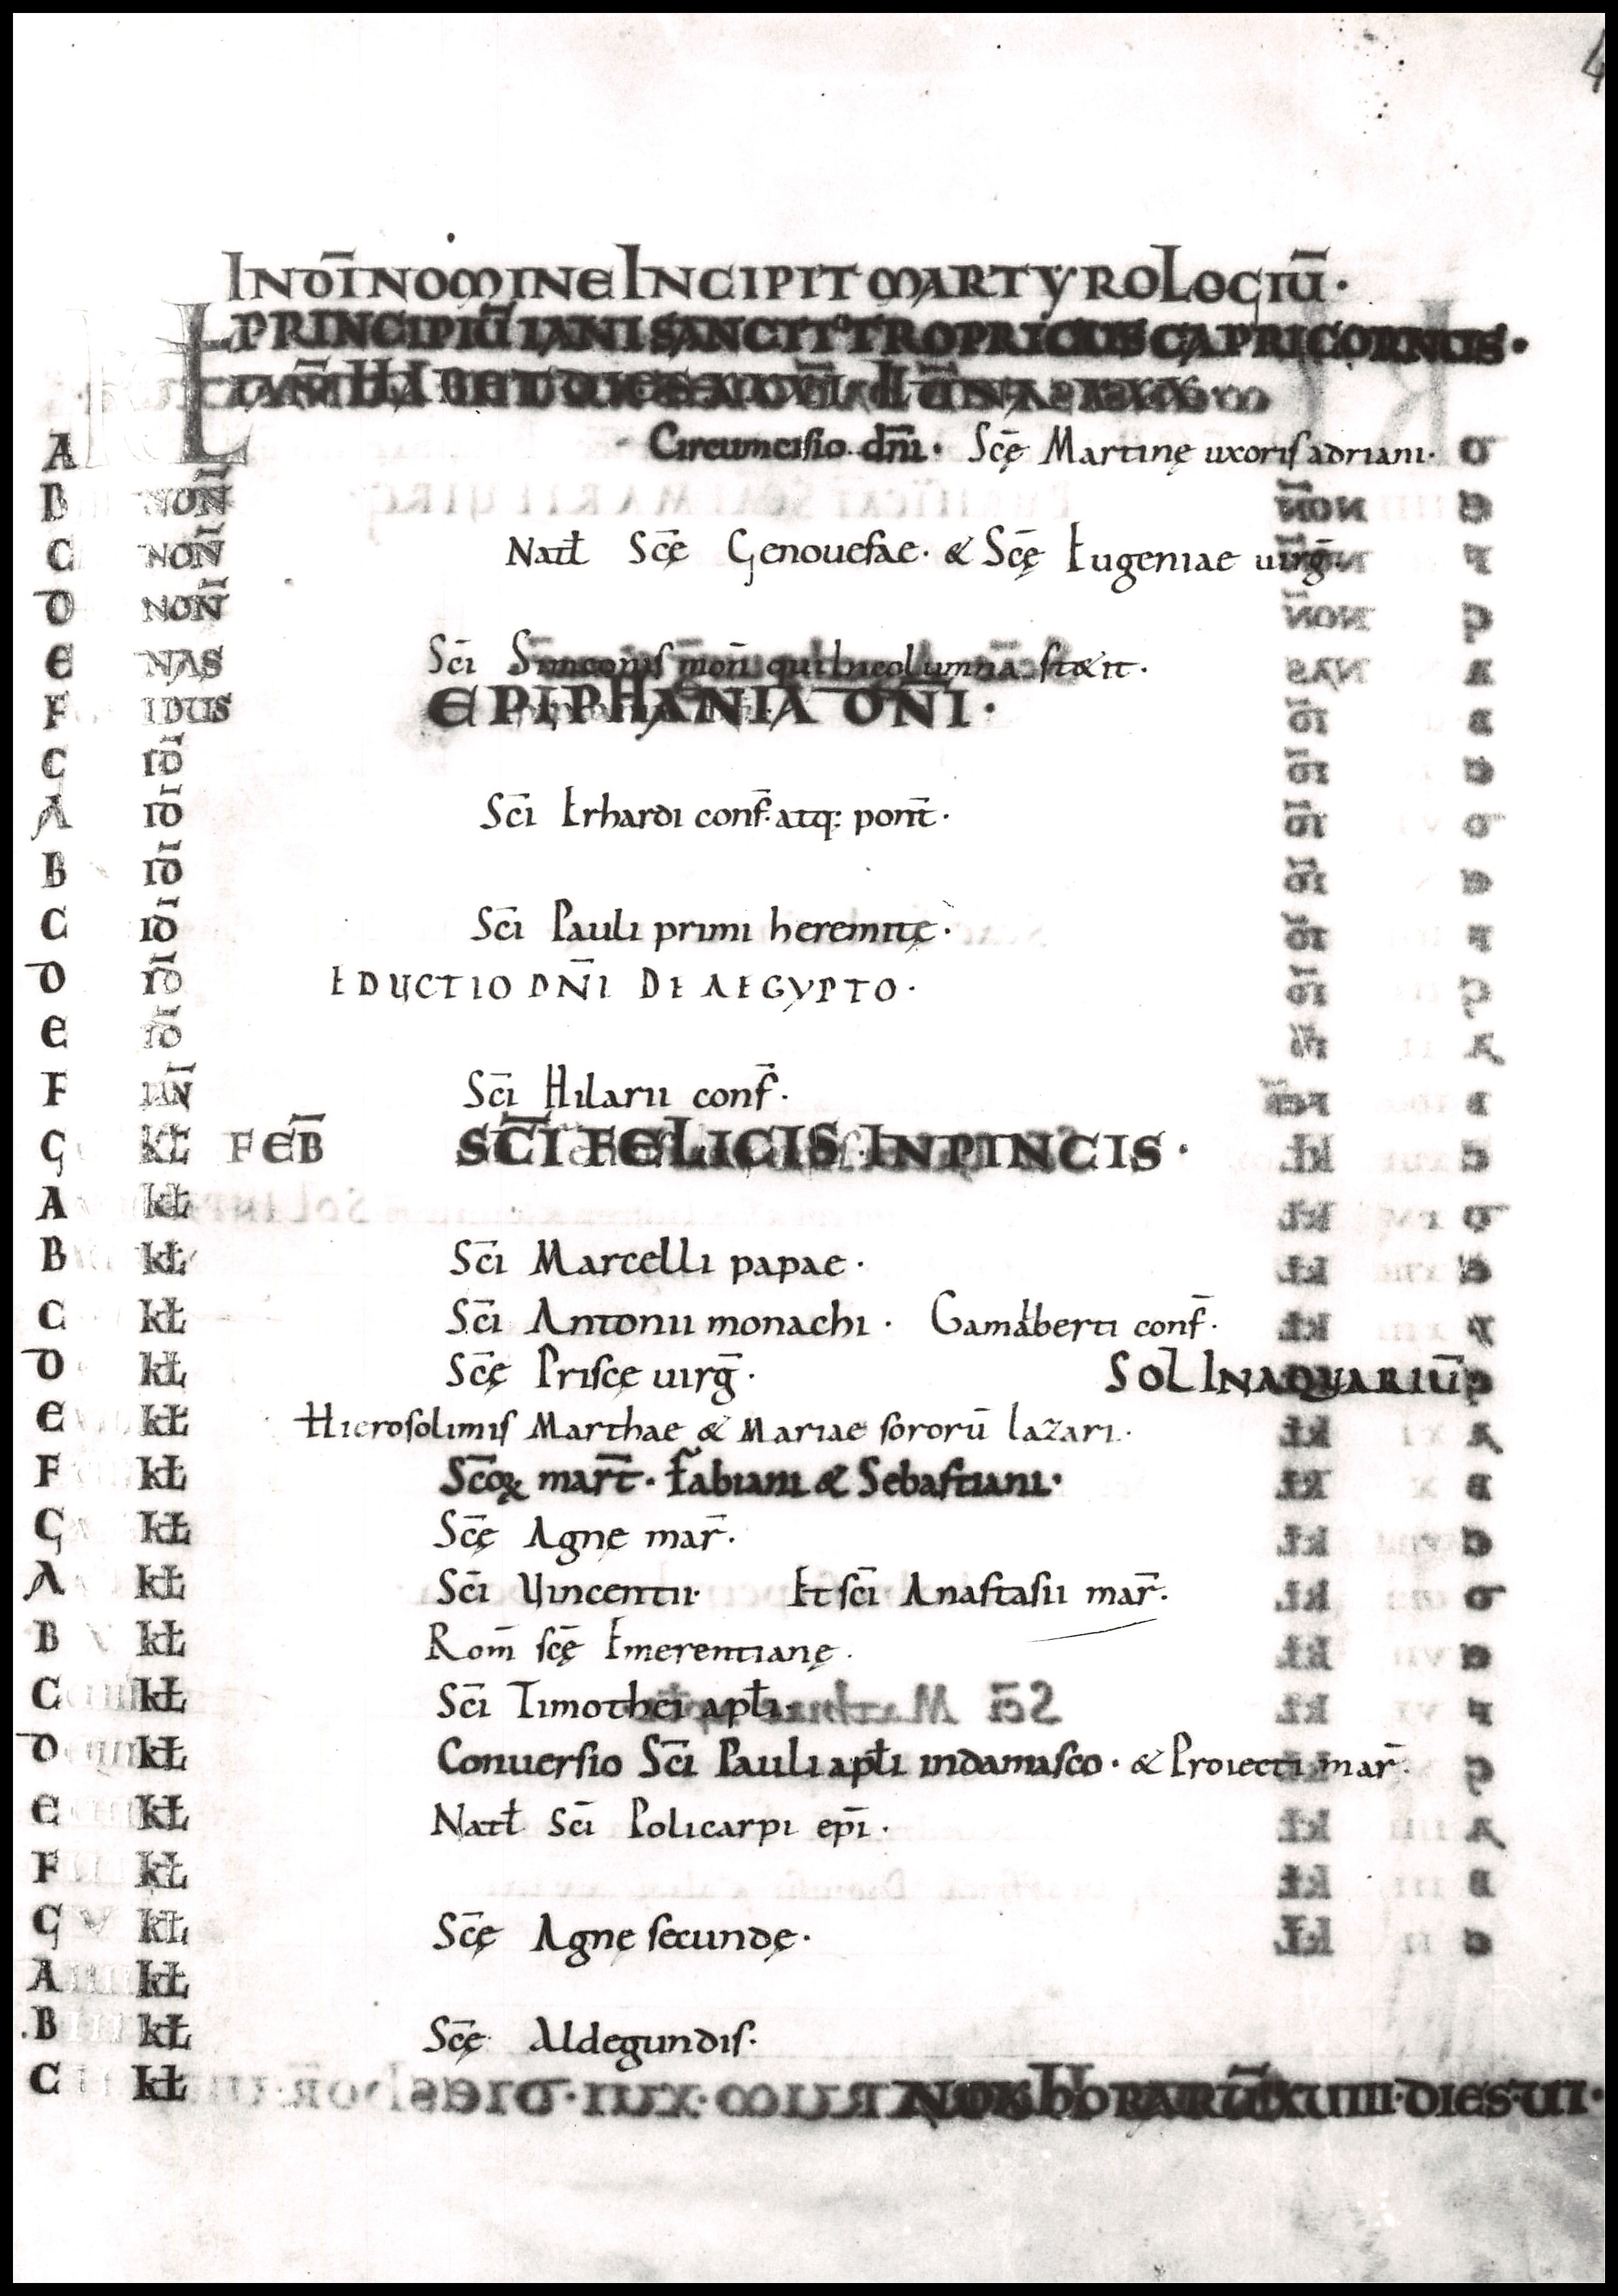 4
IN DN̄I NOMINE INCIPIT MARTYROLOGIŪ·
PRINCIPIŪ IANI SANCIT TROPRICUS CAPRICORNUS·
KŁ IAN̄ HABET DIES XXXI LŪNA XXX
A Circumcisio dn̄i· Sc̄ę Martinę uxoris adriani·
B NON̄
C NON̄ Natł Sc̄ę Genouefae· & Sc̄ę Eugeniae uirḡ·
D NON̄
E NAS Sc̄i Simeonis mon̄ qui In columna stetit·
F IDUS EPIPHANIA DN̄I·
G ID̄
A ID̄ Sc̄i Erhardi conf̄· atq: pont̄·
B ID̄
C ID̄ Sc̄i Pauli primi heremitę·
D ID̄ EDUCTIO DN̄I DE AEGYPTO·
E ID̄
F IAN̄ Sc̄i Hilarii conf̄·
G KŁ FEB̄ SC̄I FELICIS INPINCIS·
A kł
B kł Sc̄i Marcelli papae·
C kł Sc̄i Antonii monachi· Gamalberti conf̄·
D kł Sc̄ę Priscę uirḡ· SOL IN AQUARIŪ
E kł Hierosolimis Marthae & Mariae sororū lazari·
F kł Sc̄oꝝ mar̄t· Fabiani & Sebastiani·
G kł Sc̄ę Agnę mar̄·
A kł Sc̄i Vincentii· Et sc̄i Anastasii mar̄·
B kł Rom̄ sc̄ę Emerentianę·
C kł Sc̄i Timothei apłi
D kł Conuersio Sc̄i Pauli apłi indamasco· & Proiecti mar̄·
E kł Natł Sc̄i Policarpi ep̄i·
F kł
G kł Sc̄ę Agnę secundę·
A kł
B kł Sc̄ę Aldegundis·
C kł NOX HORARŪ XUIII· DIES· UI·